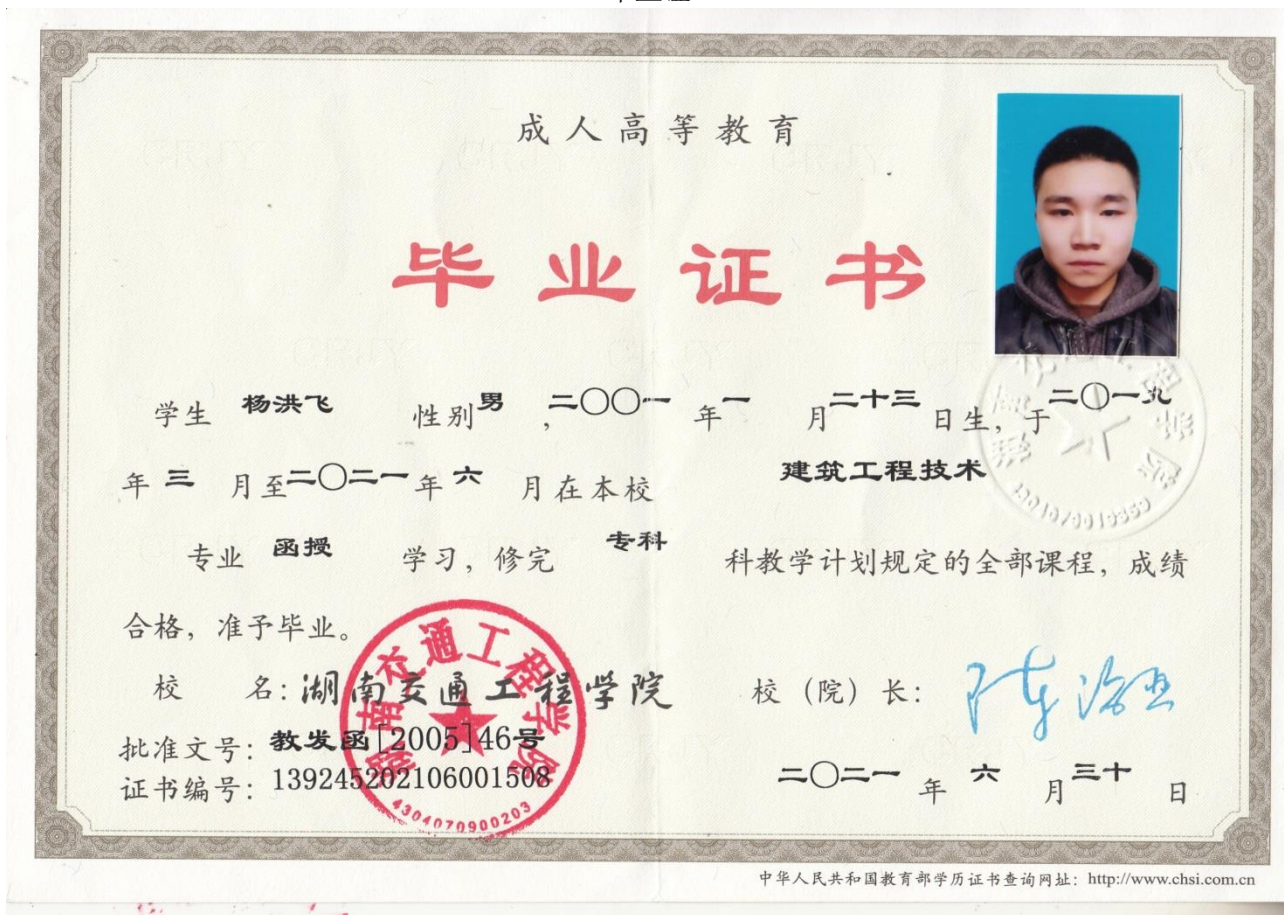 成人高等教育
毕业证书
学生 杨洪飞 性别 男 ，二〇〇一 年 一 月 二十三 日生，于 二〇一九
年 三 月至 二〇二一 年 六 月在本校 建筑工程技术
专业 函授 学习，修完 专科 科教学计划规定的全部课程，成绩
合格，准予毕业。
校 名：湖南交通工程学院 校（院）长：
批准文号：教发函[2005]46号
证书编号：139245202106001508
二〇二一 年 六 月 三十 日
湖南交通工程学院
4304070900203
中华人民共和国教育部学历证书查询网址：http://www.chsi.com.cn